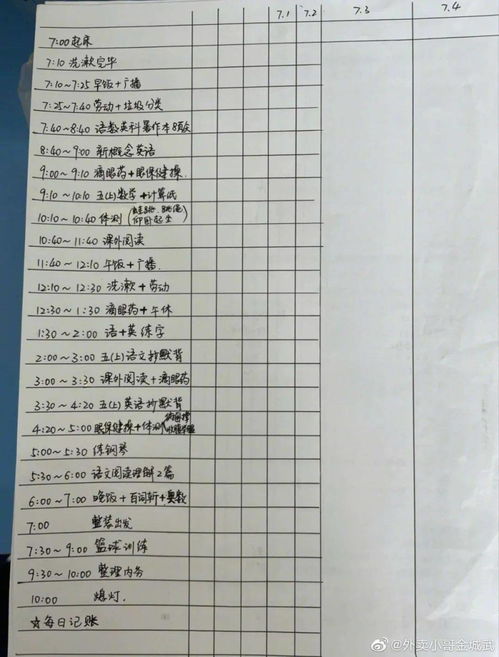 7.1 7.2 7.3 7.4
7:00 起床
7:10 洗漱完毕
7:10~7:25 早饭+广播
7:25~7:40 劳动+垃圾分类
7:40~8:40 语数英科暑作本8页
8:40~9:00 新概念英语
9:00~9:10 滴眼药+眼保健操.
9:10~10:10 五(上)数学+计算纸
10:10~10:40 体测(蛙跳、跳绳 仰卧起坐)
10:40~11:40 课外阅读
11:40~12:10 午饭+广播.
12:10~12:30 洗漱+劳动
12:30~1:30 滴眼药+午休
1:30~2:00 语+英练字
2:00~3:00 五(上)语文抄默背
3:00~3:30 课外阅读+滴眼药
3:30~4:20 五(上)英语抄默背
4:20~5:00 眼保健操+体测
5:00~5:30 练钢琴
5:30~6:00 语文阅读理解2篇
6:00~7:00 晚饭+百词斩+奥数
7:00 整装出发
7:30~9:00 篮球训练
9:30~10:00 整理内务
10:00 熄灯.
☆每日记账
@外卖小哥金城武